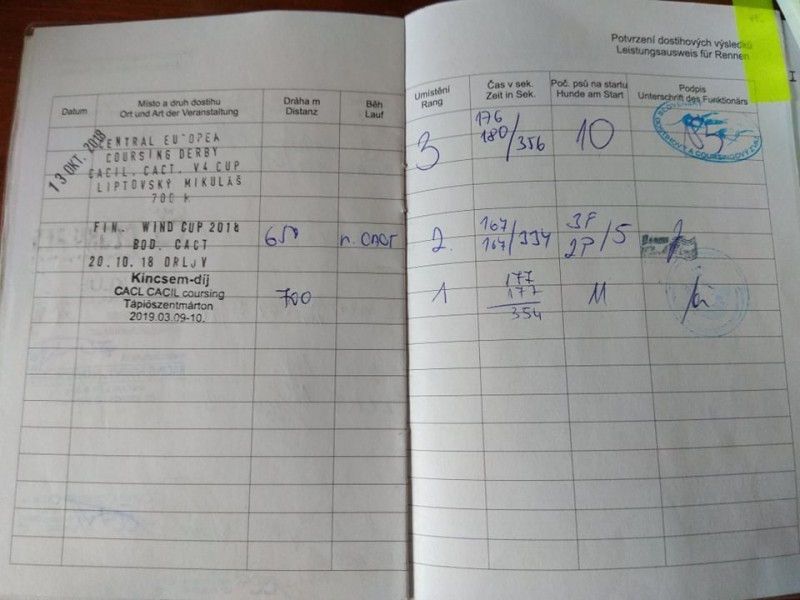 Potvrzení dostihových výsledků
Leistungsausweis für Rennen
Datum
Místo a druh dostihu
Ort und Art der Veranstaltung
Dráha m
Distanz
Běh
Lauf
Umístění
Rang
Čas v sek.
Zeit in Sek.
Poč. psů na startu
Hunde am Start
Podpis
Unterschrift des Funktionärs
13 OKT. 2018
CENTRAL EUROPEA
COURSING DERBY
CACIL, CACT, V4 CUP
LIPTOVSKÝ MIKULÁŠ
700
3
176
180/356
10
FIN. WIND CUP 2018
BOD. CACT
20.10.18 ORLOV
650
n. CACT
2.
167
167/334
3F
2P/5
Kincsem-díj
CACL CACIL coursing
Tápiószentmárton
2019.03.09-10.
700
1
177
177
354
11